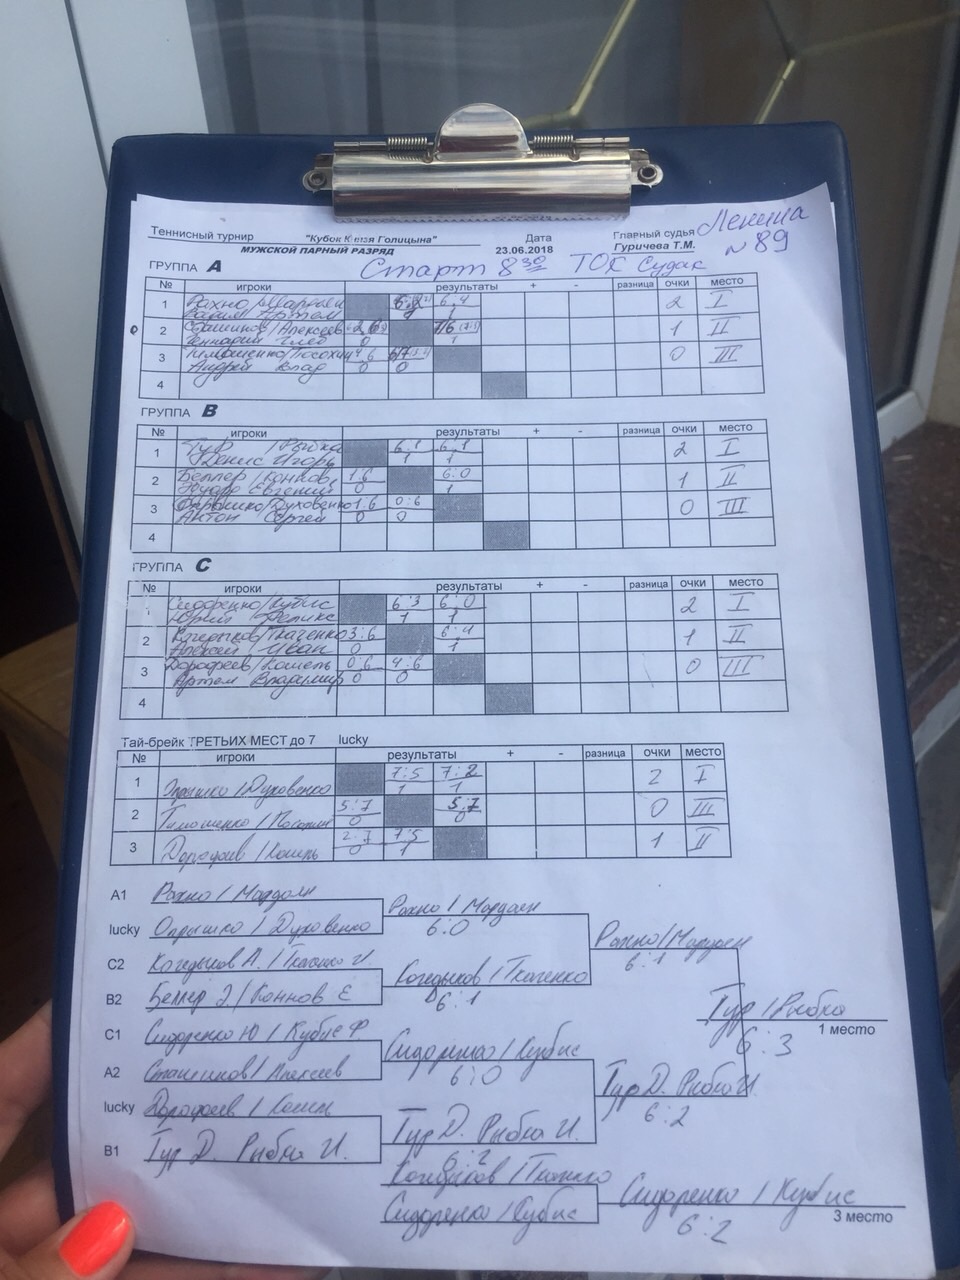 Теннисный турнир "Кубок Князя Голицына" Дата Главный судья Ленина
МУЖСКОЙ ПАРНЫЙ РАЗРЯД 23.06.2018 Гуричева Т.М. №89
ГРУППА А Старт 8 30 ТОК Судак
№ игроки результаты + - разница очки место
1 Рахно 6:2 6:4 2 I
Вадим Артем 1 1
2 Сташинов/Алексеев 7/6 1 II
Геннадий Глеб 0 1
3 Тимошенко/Посохин 4:6 6/7 0 III
Андрей Влад 0 0
4
ГРУППА В
№ игроки результаты + - разница очки место
1 Тур / Рыбка 6:1 6:1 2 I
Денис Игорь 1 1
2 Беллер/Коннов 1:6 6:0 1 II
Эдуард Евгений 0 1
3 Опрышко/Духовенко 1:6 0:6 0 III
Антон Сергей 0 0
4
ГРУППА С
№ игроки результаты + - разница очки место
1 Сидоренко/Кубис 6:3 6:0 2 I
Юрий Феликс 1 1
2 Ткаченко 3:6 6:4 1 II
Алексей Иван 0 1
3 Дорофеев/Кошель 0:6 4:6 0 III
Артем Владимир 0 0
4
Тай-брейк ТРЕТЬИХ МЕСТ до 7 lucky
№ игроки результаты + - разница очки место
1 Опрышко/Духовенко 7:5 7:2 2 I
1 1
2 Тимошенко/Посохин 5:7 5:7 0 III
0 0
3 Дорофеев/Кошель 2:7 7:5 1 II
0 1
A1 Рахно/
lucky Опрышко/Духовенко
Рахно/
6:0
C2 А./Ткаченко И.
B2 Беллер Э./Коннов Е
/Ткаченко
6:1
Рахно/
6:1
C1 Сидоренко Ю/Кубис Ф
A2 Сташинов/Алексеев
Сидоренко/Кубис
6:0
lucky Дорофеев/Кошель
B1 Тур Д. Рыбка И.
Тур Д. Рыбка И.
6:2
Тур Д. Рыбка И.
6:2
Тур/Рыбка
1 место
6:3
/Ткаченко
Сидоренко/Кубис
Сидоренко/Кубис
3 место
6:2